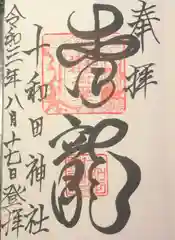 奉拝
青龍
十和田神社
令和三年八月廿七日登拝